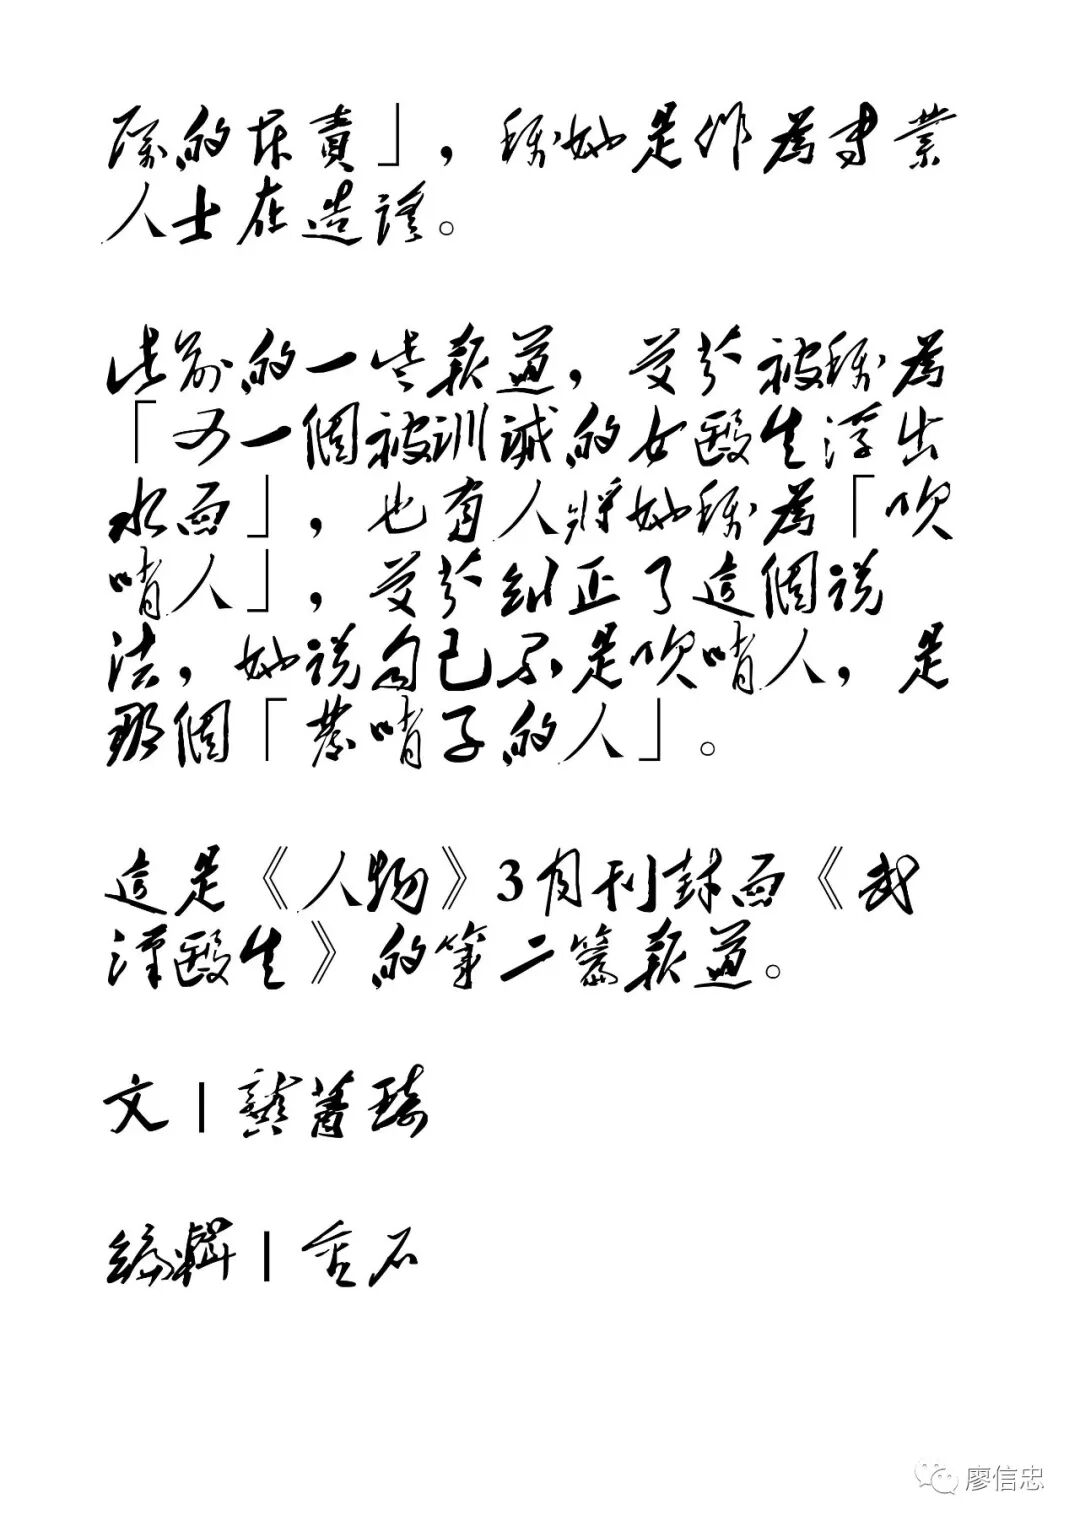 厲的斥責」，稱她是作為專業
人士在造謠。
此前的一些報道，艾芬被稱為
「又一個被訓誡的女醫生浮出
水面」，也有人將她稱為「吹
哨人」，艾芬糾正了這個說
法，她說自己不是吹哨人，是
那個「發哨子的人」。
這是《人物》3月刊封面《武
漢醫生》的第二篇報道。
文|龔菁琦
編輯|金石
廖信忠